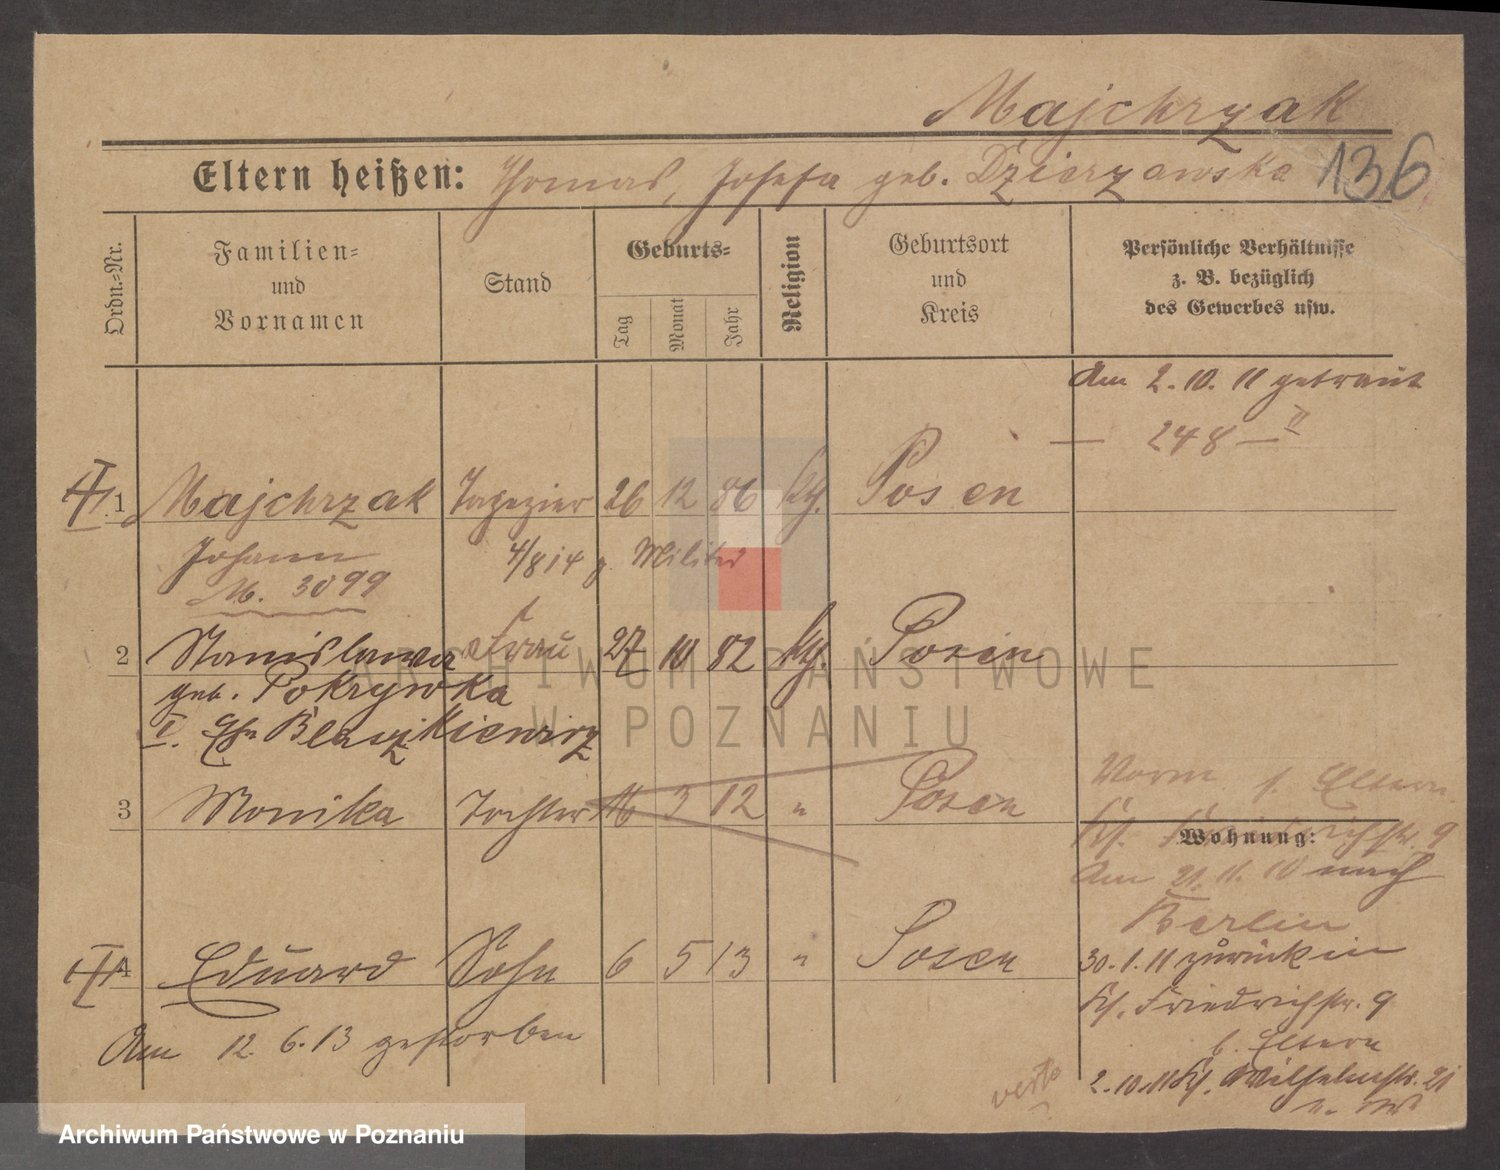 Majchrzak
Eltern heißen: Thomas, Josefa geb. Dzierzawska 136
Ordn.=Nr.
Familien=
und
Vornamen
Stand
Geburts=
Tag
Monat
Jahr
Religion
Geburtsort
und
Kreis
Persönliche Verhältnisse
z. B. bezüglich
des Gewerbes usw.
Am 2. 10. 11 getraut
— 248 — II
1 Majchrzak Tapezier 26 12 86 kth. Posen
Johann 4/8 14 z. Militär
M. 3099
2 Stanislawa Frau 27 10 82 kth. Posen
geb. Pokrywka
I. Ehe Blaszkiewicz
3 Monika Tochter 16 3 12 " Posen
Vorm. b. Eltern
9
Wohnung:
Am 21. 11. 10 nach
Berlin
4 Eduard Sohn 6 5 13 " Posen
30. 1. 11 zurück in
Friedrichstr. 9
b. Eltern
Am 12. 6. 13 gestorben
2. 10. 11 Wilhelmstr. 21
verte
ARCHIWUM PAŃSTWOWE
W POZNANIU
Archiwum Państwowe w Poznaniu